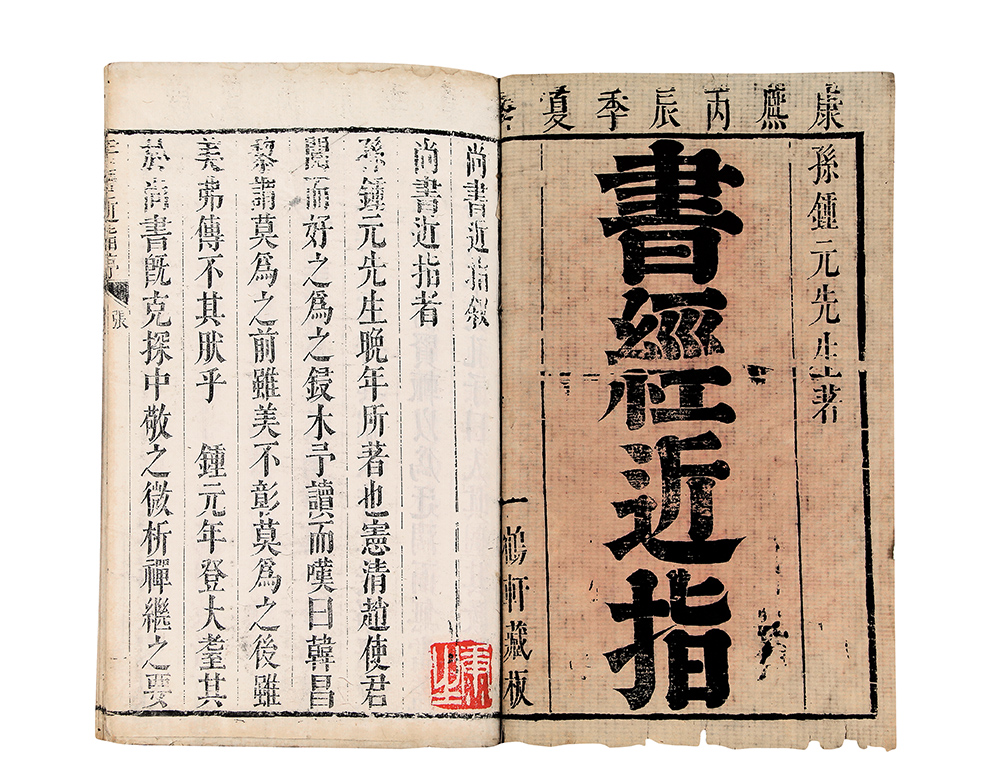 康熈丙辰季夏
孫鍾元先生著
書經近指
一鶴軒藏板
尚書近指敘
尚書近指者
孫鍾元先生晚年所著也憲清趙使君
閱而好之爲之鋟木予讀而嘆曰韓昌
黎謂莫爲之前雖美不彰莫爲之後雖
美弗傳不其肰乎　鍾元年登大耋其
於尚書旣克探中敬之微析禪繼之要
張
一